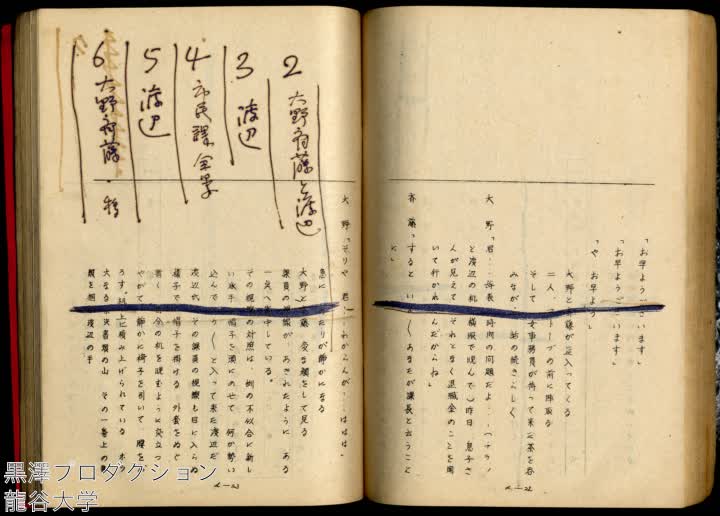 「お早ようございます」
「お早ようございます」
「や お早よう」
大野と斉藤が 這入ってくる
二人、ストーブの前に陣取る
そして 女事務員が持って来た茶を呑
みながら 話の続きらしく
大野「君……毎長 時間の問題だよ……(チラノ
と渡辺の机を横眼で睨んで)昨日 息子さ
んが見えて それとなく退職金のことを聞
いて行かれたんだからね」
斉藤「すると いよ〱あなたが課長と云うこと
に」
大野「そりや 君……わからんが……ははは」
急に あたりが静かになる
大野と斉藤 変な顔をして見る
課員の視線が あきれたように ある
一点へ集中している。
その視線の対照は、例の不似合に新し
い派手な帽子を頭にのせて 何か勢い
込んで のり〱と入って来た渡辺だ
渡辺が、その課員の視線も目に入らぬ
様子で 帽子を掛ける 外套をぬぐ
暫く 自分の机を睨むように突立つ
やがて 静かに椅子を引いて 腰を
下ろす。机上に積み上げられている
大なる未決書類の山 その一番上の書
類を掴む渡辺の手
2 大野斉藤と渡辺
3 渡辺
4 市民課 全景
5 渡辺
6 大野斉藤
黒澤プロダクション
龍谷大学